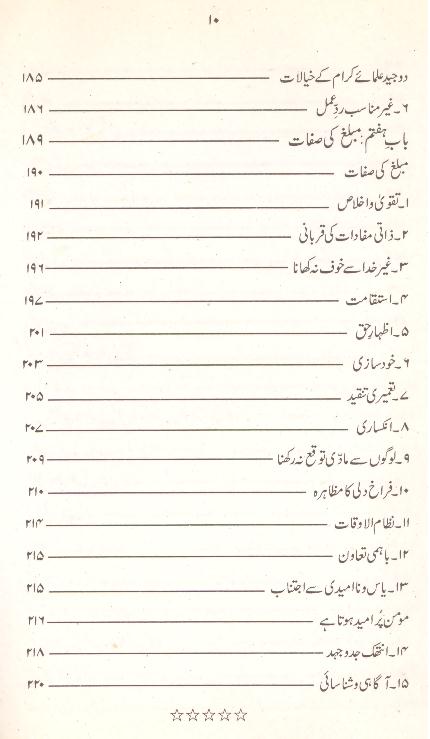 ۱۰
دو جید علمائے کرام کے خیالات ۱۸۵
۶۔غیر مناسب ردِّعمل ۱۸۶
بابِ ہفتم: مبلغ کی صفات ۱۸۹
مبلغ کی صفات ۱۹۰
۱۔تقویٰ و اخلاص ۱۹۱
۲۔ذاتی مفادات کی قربانی ۱۹۲
۳۔غیر خدا سے خوف نہ کھانا ۱۹۶
۴۔استقامت ۱۹۷
۵۔اظہارِ حق ۲۰۱
۶۔خود سازی ۲۰۳
۷۔تعمیری تنقید ۲۰۵
۸۔انکساری ۲۰۷
۹۔لوگوں سے مادّی توقع نہ رکھنا ۲۰۹
۱۰۔فراخ دلی کا مظاہرہ ۲۱۰
۱۱۔نظام الاوقات ۲۱۴
۱۲۔باہمی تعاون ۲۱۵
۱۳۔یاس و ناامیدی سے اجتناب ۲۱۵
مومن پُر امید ہوتا ہے ۲۱۶
۱۴۔انتھک جدوجہد ۲۱۸
۱۵۔آگاہی و شناسائی ۲۲۰
☆☆☆☆☆